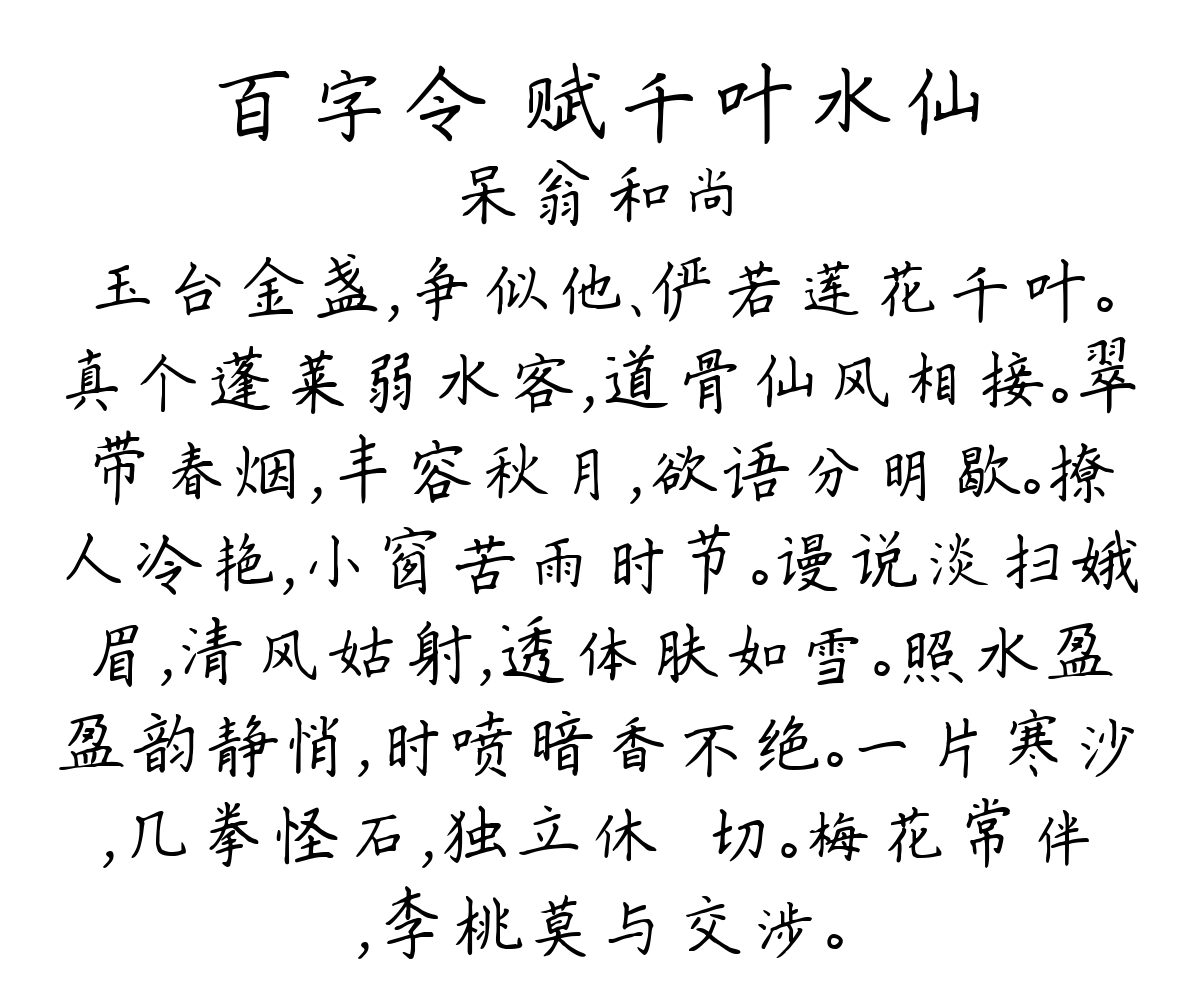 百字令 赋千叶水仙
呆翁和尚
玉台金盏,争似他、俨若莲花千叶。
真个蓬莱弱水客,道骨仙风相接。翠
带春烟,丰容秋月,欲语分明歇。撩
人冷艳,小窗苦雨时节。谩说淡扫娥
眉,清风姑射,透体肤如雪。照水盈
盈韵静悄,时喷暗香不绝。一片寒沙
,几拳怪石,独立休 切。梅花常伴
,李桃莫与交涉。